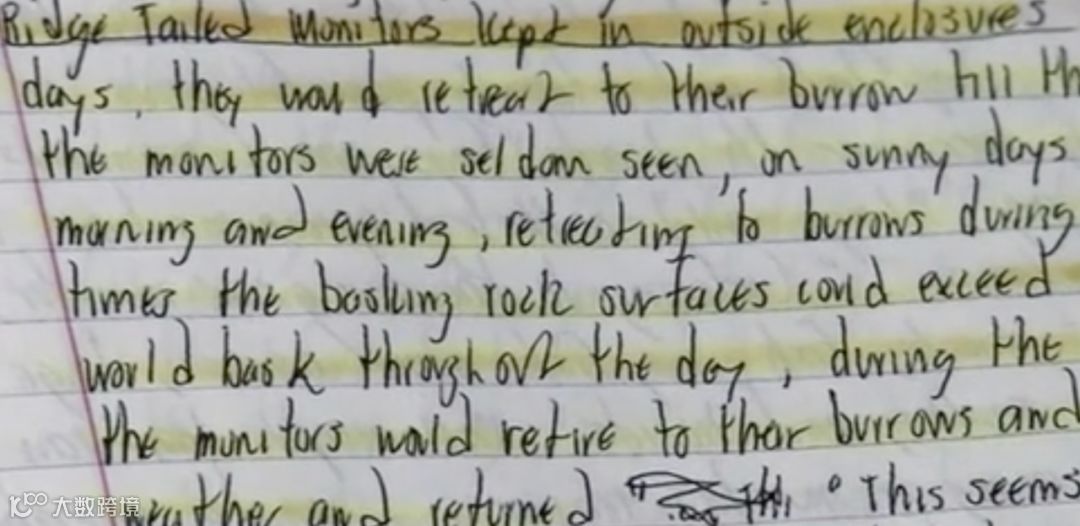 Ridge Tailed Monitors kept in outside enclosures
days, they would retreat to their burrow till th
the monitors were seldom seen, on sunny days
morning and evening, retreating to burrows during
times the basking rock surfaces could exceed
would bask throughout the day, during the
the monitors would retire to their burrows and
weather and returned This seems
10100 大数跨境